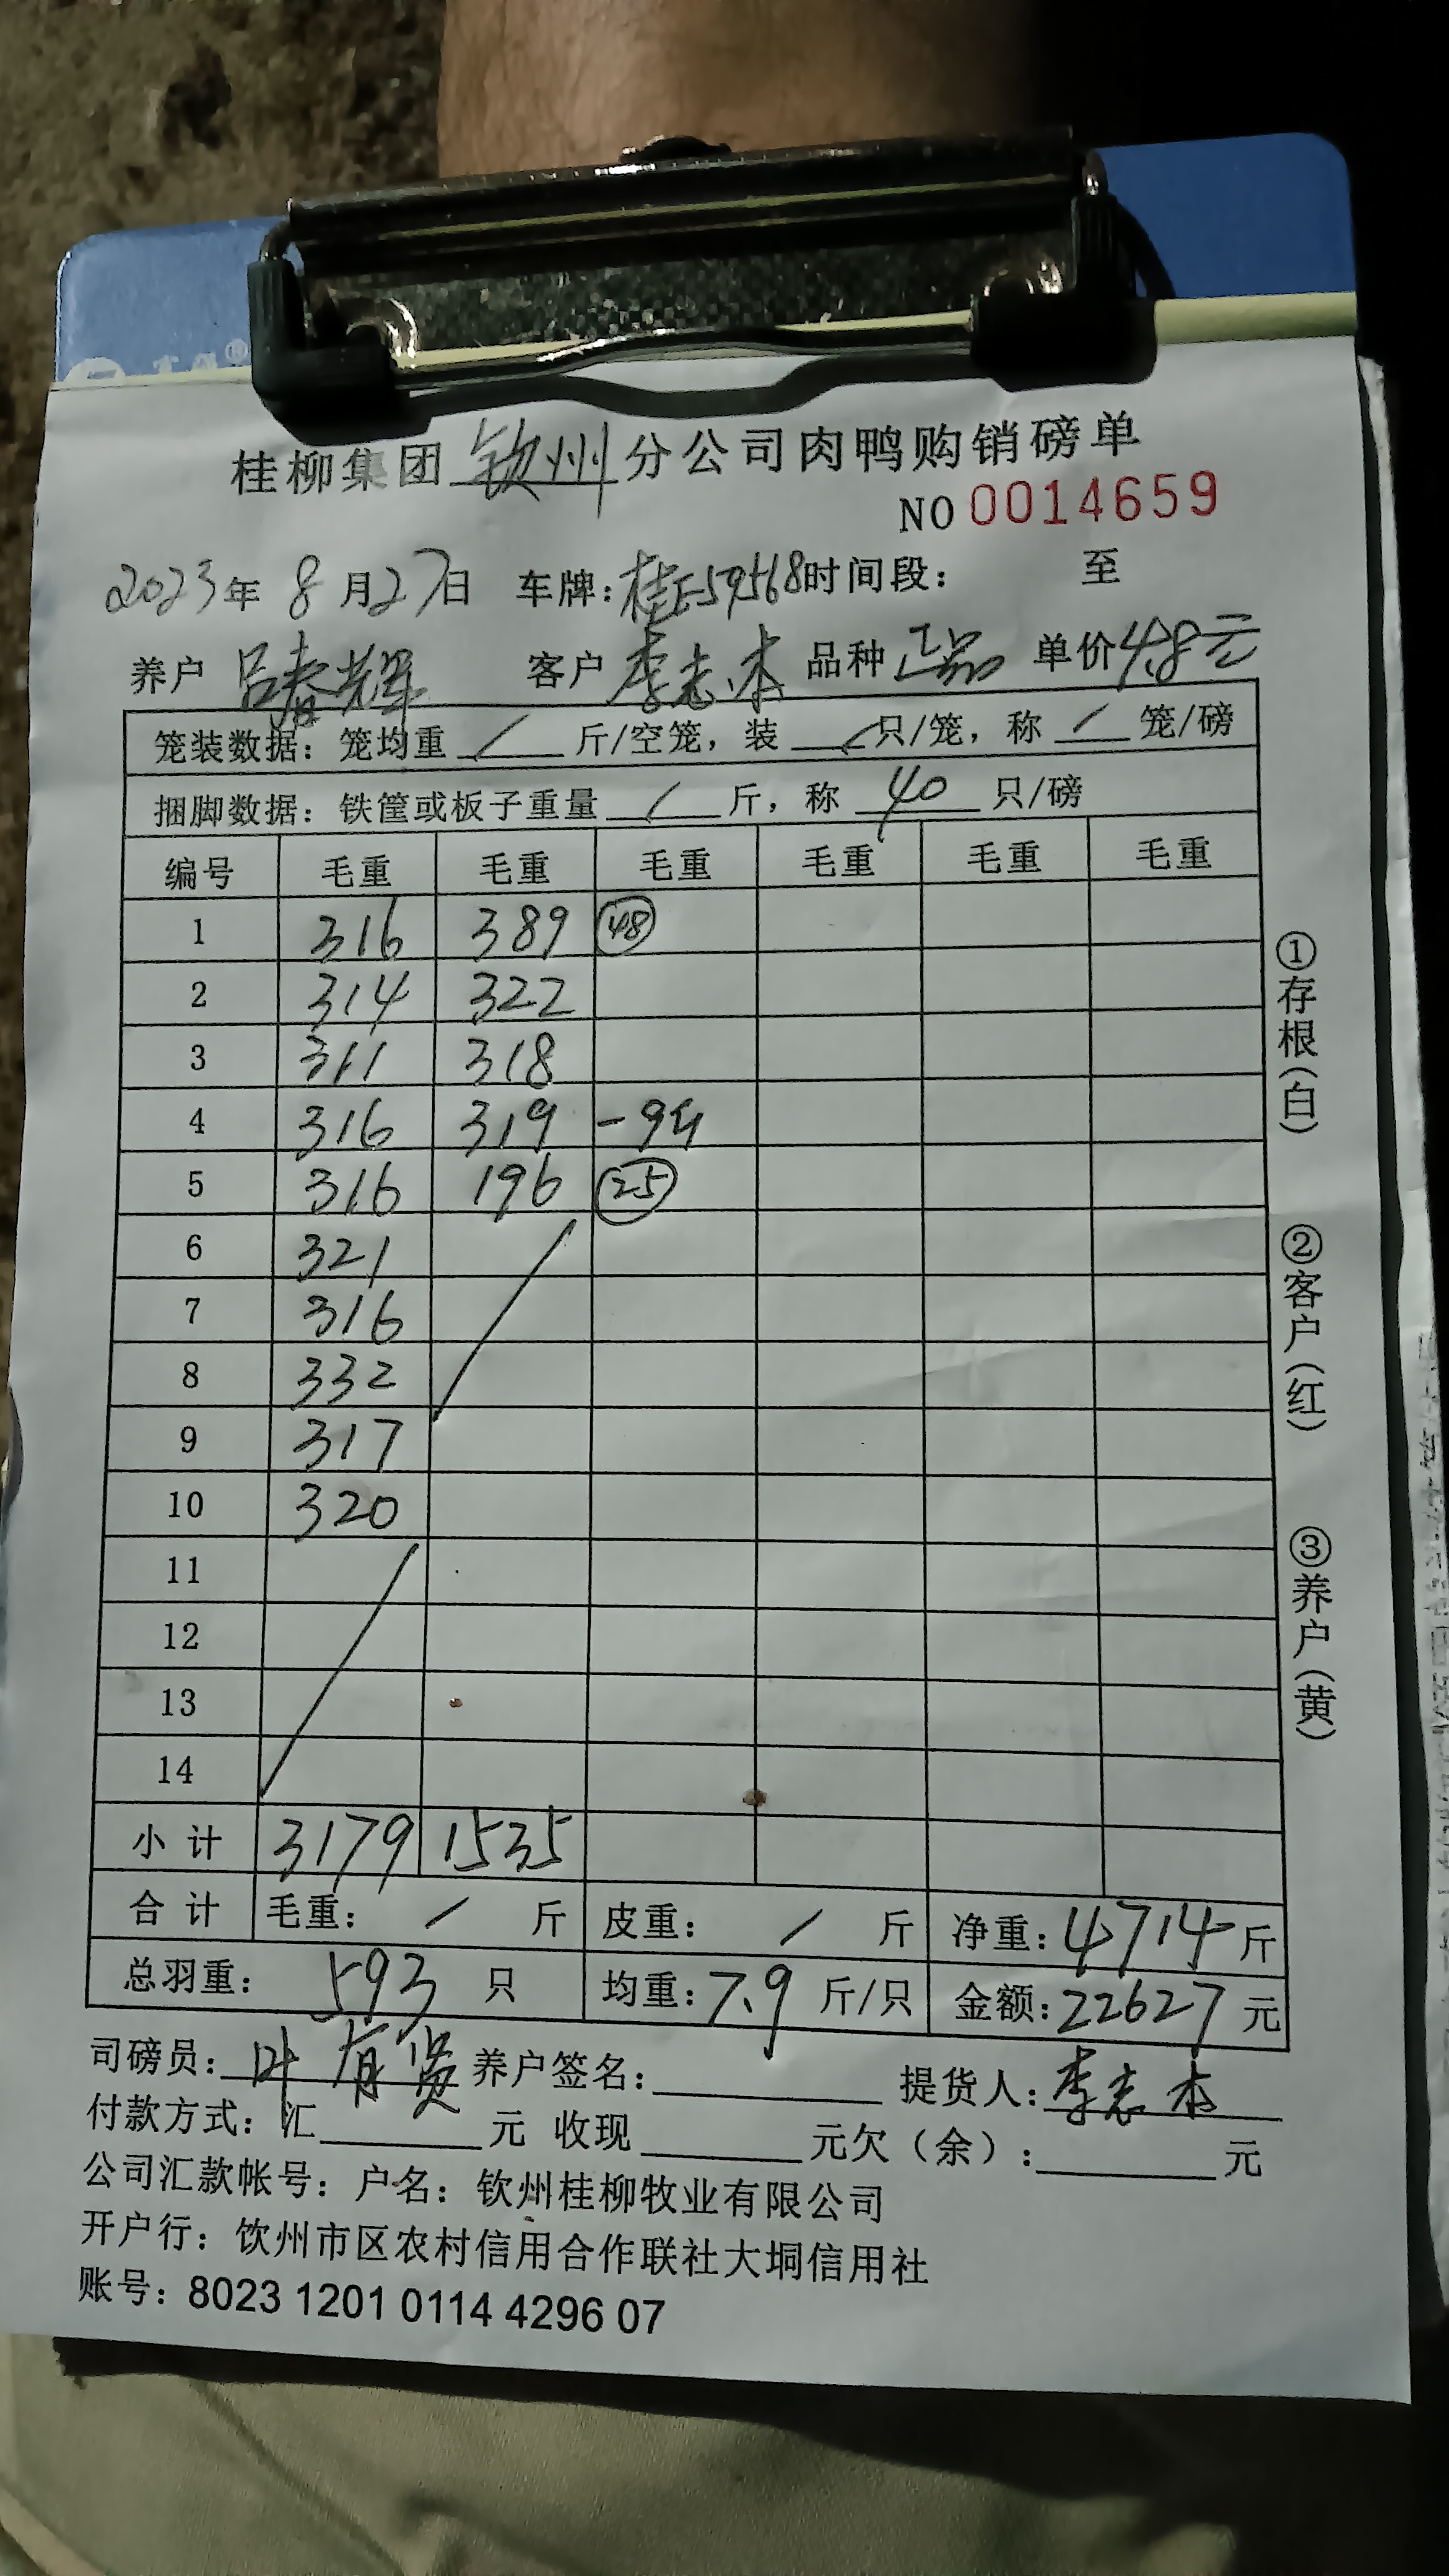 桂柳集团 钦州 分公司肉鸭购销磅单
NO 0014659
2023年 8月27日 车牌：桂E59568 时间段： 至
养户 吕春辉 客户 李志本 品种 正品 单价 4.8元
笼装数据：笼均重 / 斤/空笼，装 / 只/笼，称 / 笼/磅
捆脚数据：铁筐或板子重量 / 斤，称 40 只/磅
编号 毛重 毛重 毛重 毛重 毛重 毛重
1 316 389 48
2 314 322
3 311 318
4 316 319 -9
5 316 196 25
6 321
7 316
8 332
9 317
10 320
11
12
13
14
小计 3179 1535
合计 毛重： / 斤 皮重： / 斤 净重：4714斤
总羽重： 593 只 均重：7.9 斤/只 金额：22627 元
司磅员：叶有贤 养户签名： 提货人：李志本
付款方式：汇 元 收现 元欠（余）： 元
公司汇款帐号：户名：钦州桂柳牧业有限公司
开户行：钦州市区农村信用合作联社大垌信用社
账号：8023 1201 0114 4296 07
①存根（白）
②客户（红）
③养户（黄）